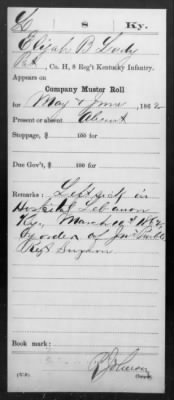 L 8 Ky.
Elijah B Lody
Pvt, Co. H, 8 Reg't Kentucky Infantry.
Appears on
Company Muster Roll
for May & June, 1862
Present or absent Absent
Stoppage, $ 100 for
Due Gov't, $ 100 for
Remarks: Left sick in
Hospital Lebanon
Ky., March 1862
by order of Jno
Regt Surgeon
Book mark:
Copyist.